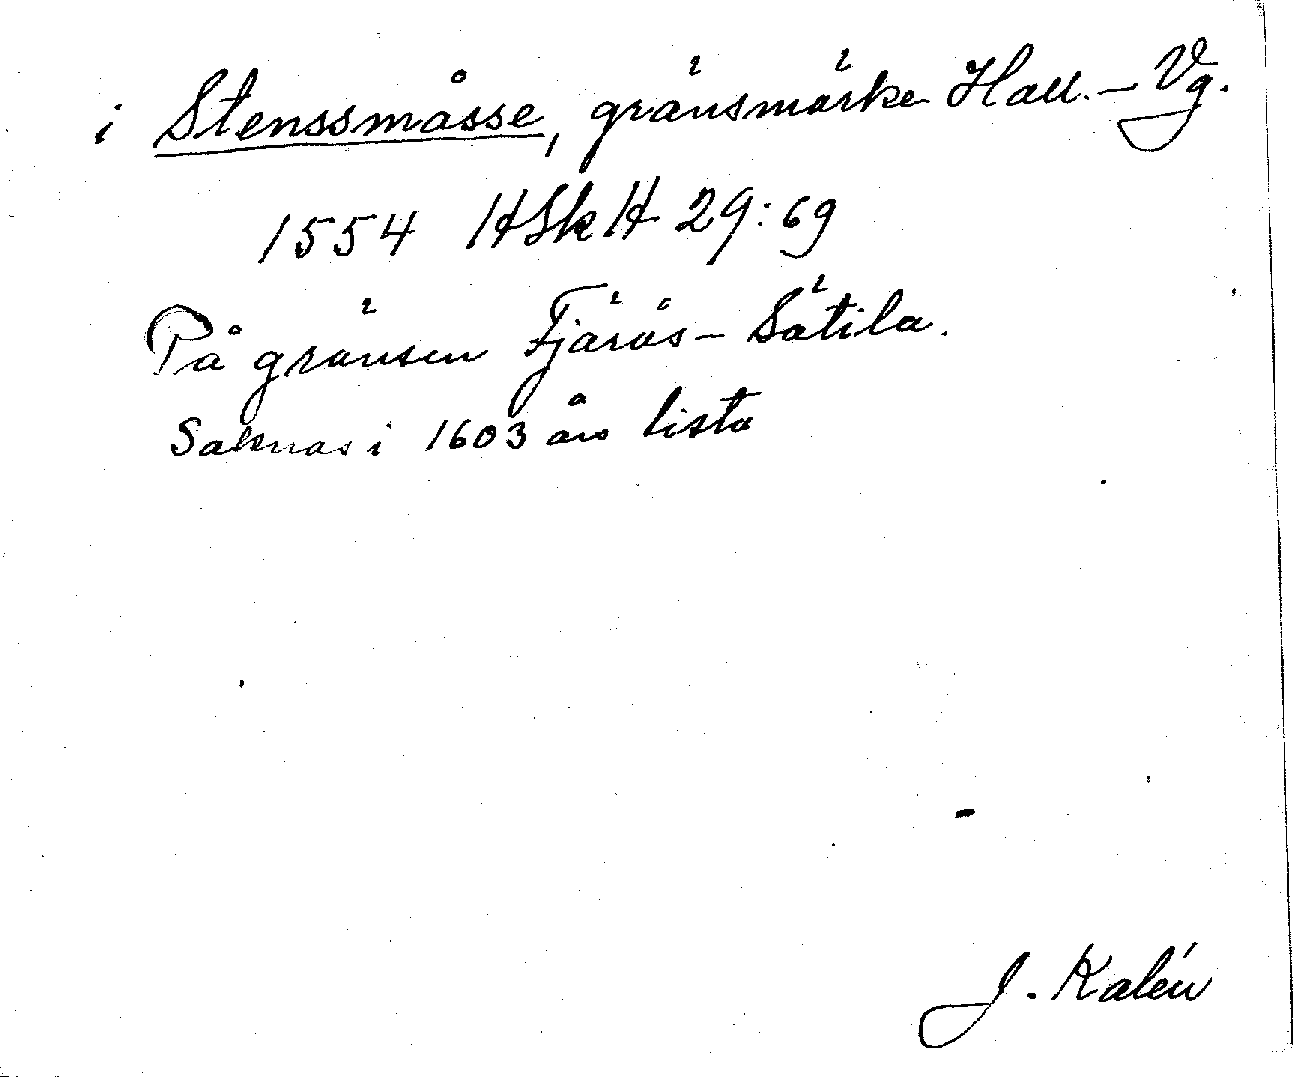 i Stenssmåsse, gränsmärke Hall.-Vg.
1554 HSkH 29:69
På gränsen Fjärås-Sätila.
Saknas i 1603 års lista
J. Kalén